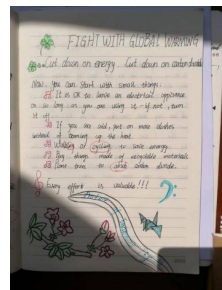 FIGHT WITH GLOBAL WARMING
Cut down on energy Cut down on carbon dioxide
Now, You can start with small things.
It is OK to leave an electrical appliance
on so long as you are using it - if not, turn
it off.
If you are cold, put on more clothes
instead of turning up the heat.
Walking or cycling to save energy.
Buy things made of recycled materials.
Plant trees to absorb carbon dioxide.
Every effort is valuable!!!